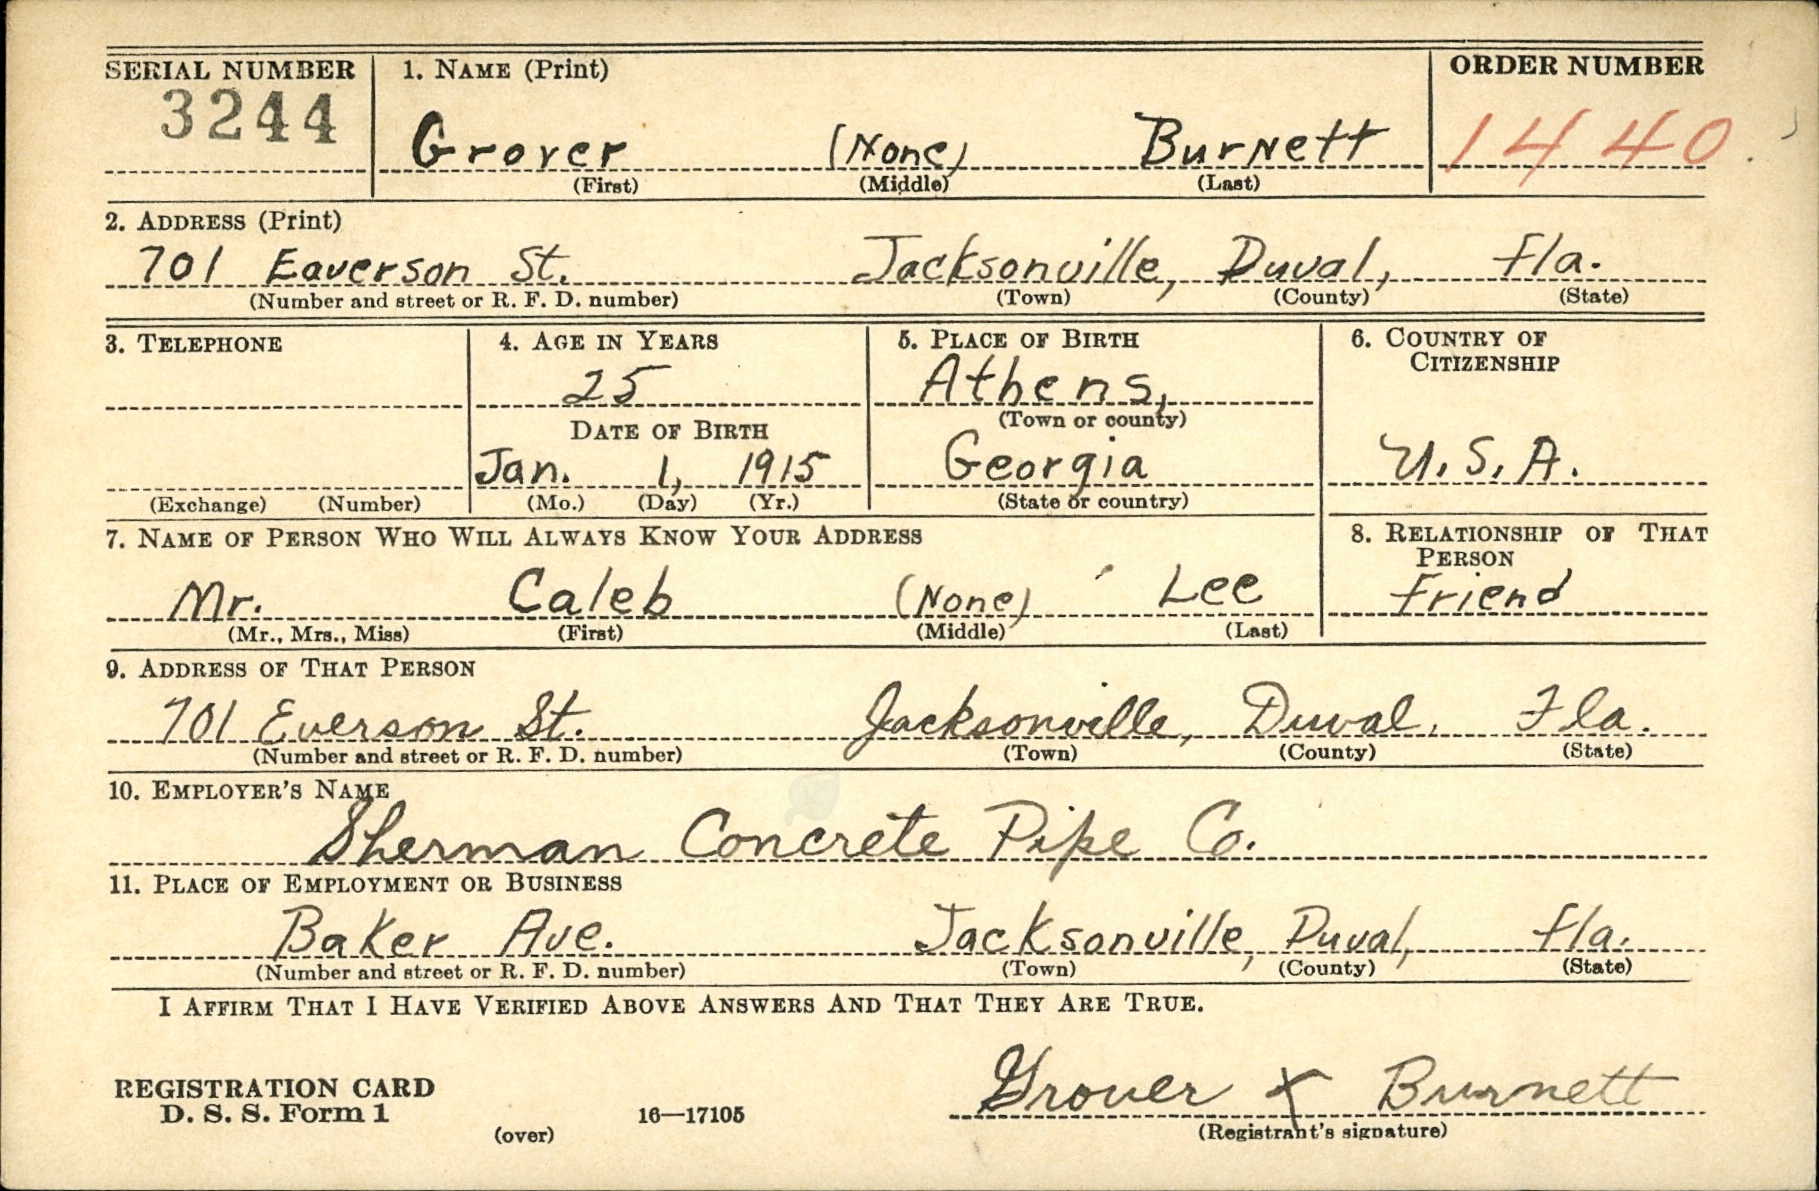 SERIAL NUMBER 1. NAME (Print) ORDER NUMBER
3244 Grover (None) Burnett 1440
(First) (Middle) (Last)
2. ADDRESS (Print)
701 Eaverson St. Jacksonville, Duval, Fla.
(Number and street or R. F. D. number) (Town) (County) (State)
3. TELEPHONE 4. AGE IN YEARS 5. PLACE OF BIRTH 6. COUNTRY OF
CITIZENSHIP
25 Athens,
(Town or county)
DATE OF BIRTH
Jan. 1, 1915 Georgia U.S.A.
(Exchange) (Number) (Mo.) (Day) (Yr.) (State or country)
7. NAME OF PERSON WHO WILL ALWAYS KNOW YOUR ADDRESS 8. RELATIONSHIP OF THAT
PERSON
Mr. Caleb (None) Lee Friend
(Mr., Mrs., Miss) (First) (Middle) (Last)
9. ADDRESS OF THAT PERSON
701 Everson St. Jacksonville, Duval, Fla.
(Number and street or R. F. D. number) (Town) (County) (State)
10. EMPLOYER'S NAME
Sherman Concrete Pipe Co.
11. PLACE OF EMPLOYMENT OR BUSINESS
Baker Ave. Jacksonville, Duval, Fla.
(Number and street or R. F. D. number) (Town) (County) (State)
I AFFIRM THAT I HAVE VERIFIED ABOVE ANSWERS AND THAT THEY ARE TRUE.
REGISTRATION CARD
D. S. S. Form 1 16—17105 Grover X Burnett
(over) (Registrant's signature)